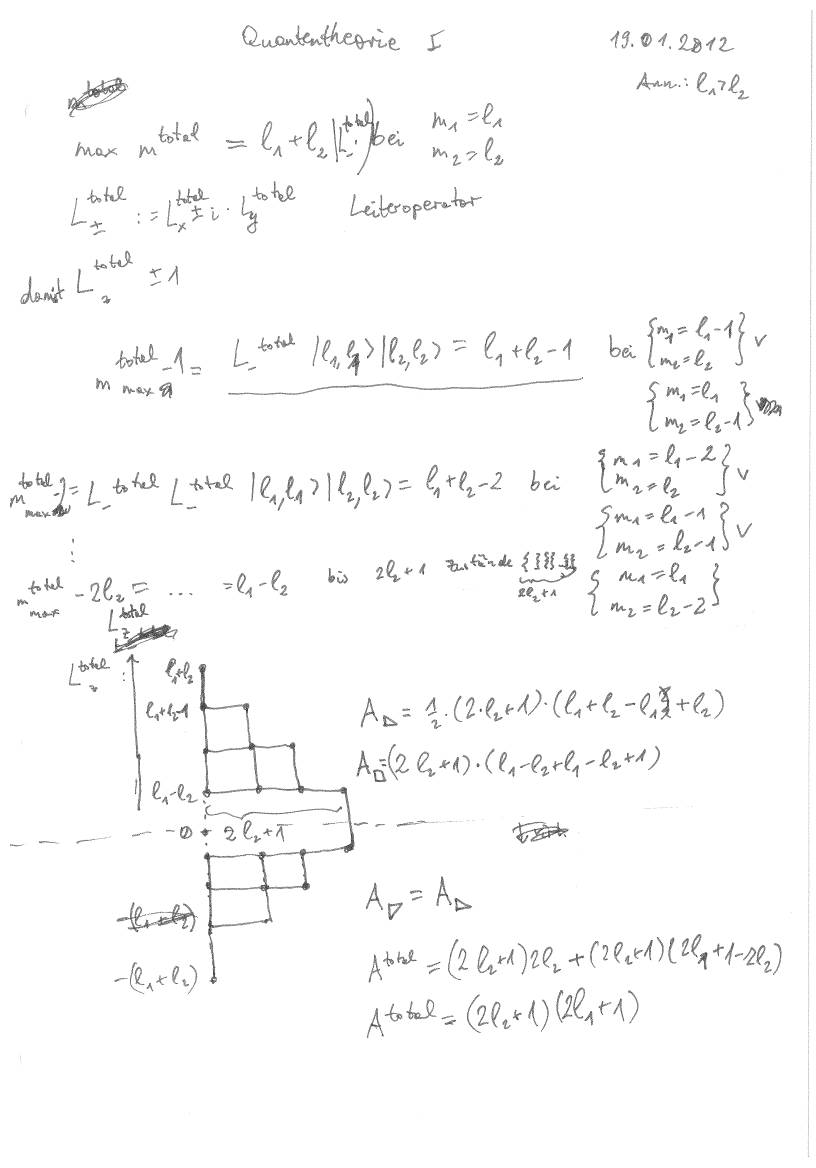 Quantentheorie I 19.01.2012
Ann.: l₁>l₂
max m^total = l₁+l₂ |L_^total bei m₁ = l₁
m₂ = l₂
L_±^total := L_x^total ± i · L_y^total Leiteroperator
damit L_z^total ±1
m_max^total -1 = L_-^total |l₁,l₁>|l₂,l₂> = l₁+l₂-1 bei {m₁ = l₁-1
m₂ = l₂} ∨
{m₁ = l₁
m₂ = l₂-1}
m_max^total -2 = L_-^total L_-^total |l₁,l₁>|l₂,l₂> = l₁+l₂-2 bei {m₁ = l₁-2
m₂ = l₂} ∨
{m₁ = l₁-1
m₂ = l₂-1} ∨
⋮
m_max^total - 2l₂ = ... = l₁-l₂ bis 2l₂+1 Zustände {}{}{}...{}
2l₂+1
{m₁ = l₁
m₂ = l₂-2}
L_z^total
L_z^total :
l₁+l₂
l₁+l₂-1
A◺ = ½·(2·l₂+1)·(l₁+l₂-l₁+l₂)
A□ = (2l₂+1)·(l₁-l₂+l₁-l₂+1)
l₁-l₂
-0 2l₂+1
A▽ = A◺
-(l₁+l₂)
-(l₁+l₂)
A^total = (2l₂+1)2l₂ + (2l₂+1)(2l₁+1-2l₂)
A^total = (2l₂+1)(2l₁+1)